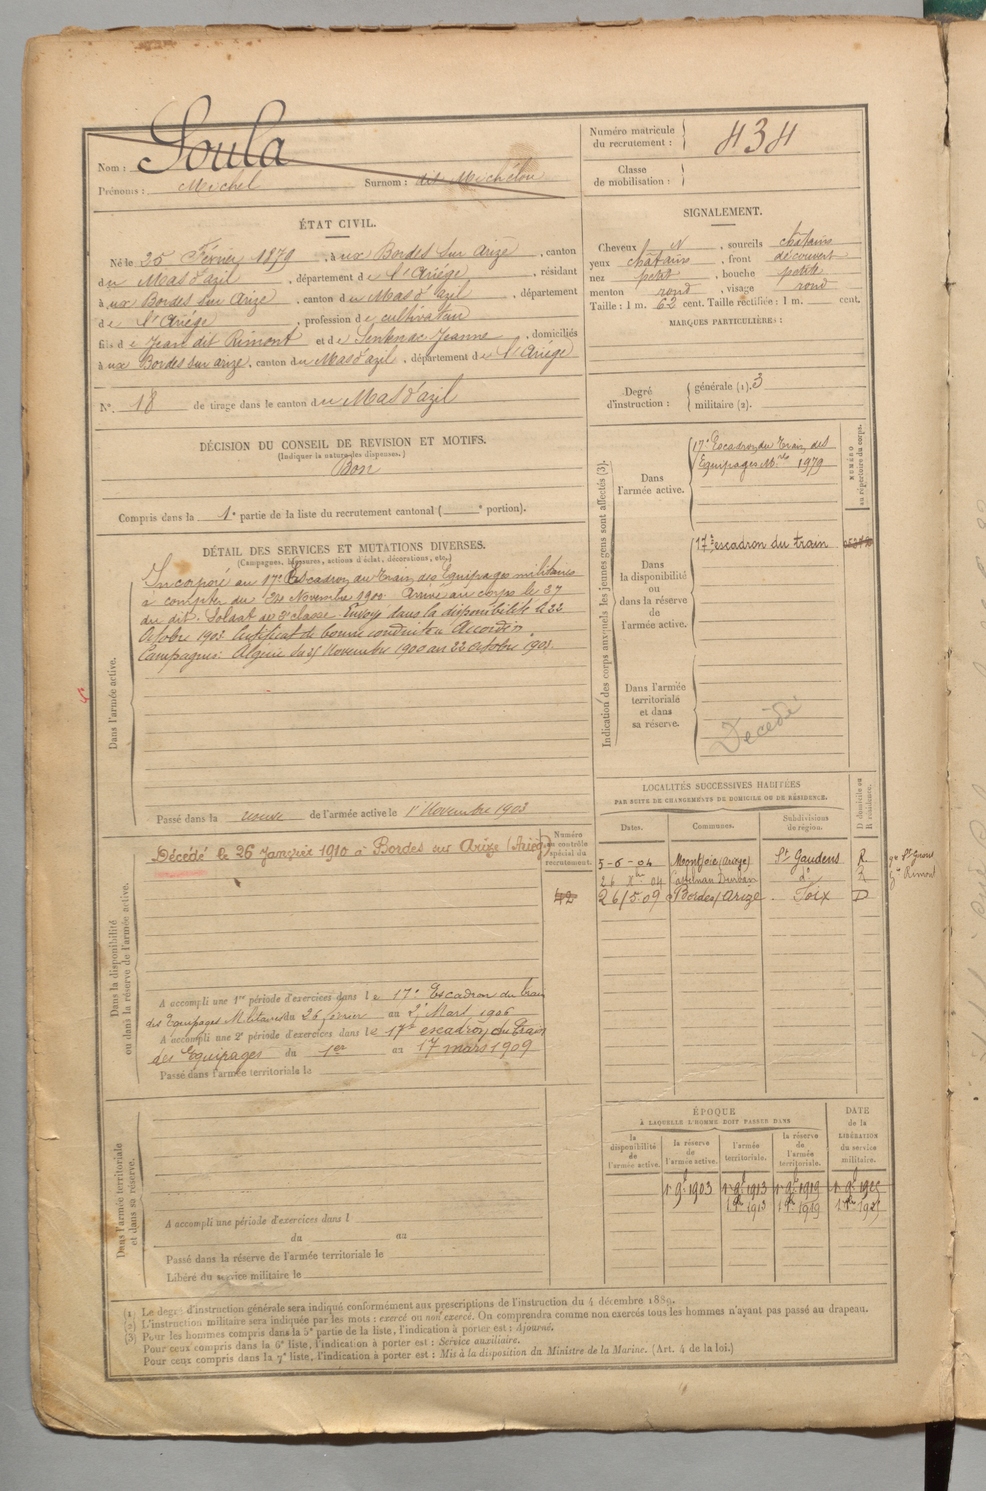 Nom : Soula
Prénoms : Michel Surnom : dit Michélou
Numéro matricule du recrutement : 434
Classe de mobilisation :
ÉTAT CIVIL.
Né le 25 Février 1879, à ux Bordes sur Arize, canton
du Mas d'azil, département de l'Ariége, résidant
à ux Bordes sur Arize, canton du Mas d'azil, département
de l'Ariége, profession de cultivateur
fils de Jean dit Rimont et de Sentenac Jeanne, domiciliés
à ux Bordes sur arize, canton du Mas d'azil, département de l'Ariége
N° 18 de tirage dans le canton du Mas d'azil
SIGNALEMENT.
Cheveux N, sourcils chatains
yeux chatains, front découvert
nez petit, bouche petite
menton rond, visage rond
Taille : 1 m. 62 cent. Taille rectifiée : 1 m. cent.
MARQUES PARTICULIÈRES :
Degré d'instruction : générale (1). 3
militaire (2).
DÉCISION DU CONSEIL DE REVISION ET MOTIFS.
(Indiquer la nature des dispenses.)
Bon
Compris dans la 1e partie de la liste du recrutement cantonal ( e portion).
DÉTAIL DES SERVICES ET MUTATIONS DIVERSES.
(Campagnes, blessures, actions d'éclat, décorations, etc.)
Dans l'armée active.
Incorporé au 17e Escadron du Train des Equipages militaires
à compter du Novembre 1900 Arrivé au corps le 27
du dit. Soldat de 2e classe. Envoyé dans la disponibilité le 22
Octobre 1903 Certificat de bonne conduite Accordé.
Campagnes : Algérie du 25 Novembre 1900 au 22 octobre 1903.
Passé dans la réserve de l'armée active le 1er Novembre 1903
Indication des corps auxquels les jeunes gens sont affectés (3).
NUMÉRO au répertoire du corps.
Dans l'armée active.
17e Escadron du Train des
Equipages Mres 1979
Dans la disponibilité ou dans la réserve de l'armée active.
17e escadron du train
Dans l'armée territoriale et dans sa réserve.
Décédé
LOCALITÉS SUCCESSIVES HABITÉES
PAR SUITE DE CHANGEMENTS DE DOMICILE OU DE RÉSIDENCE.
Dates. Communes. Subdivisions de région. D domicile ou R résidence.
5-6-04 Montjoie (Ariège) St Gaudens R. gie St Girons
26 Xbre 04 Castelnau Durban do R gie Rimont
26/5-09 Bordes s/ Arize Foix D
Dans la disponibilité ou dans la réserve de l'armée active.
Numéro au contrôle spécial du recrutement.
Décédé le 26 Janvier 1910 à Bordes sur Arize (Ariège)
42
A accompli une 1re période d'exercices dans le 17e Escadron du train
des Equipages Militaires du 26 février au Mars 1906
A accompli une 2e période d'exercices dans le 17e escadron du Train
des Equipages du 1er au 17 mars 1909
Passé dans l'armée territoriale le
Dans l'armée territoriale et dans sa réserve.
A accompli une période d'exercices dans l
du au
Passé dans la réserve de l'armée territoriale le
Libéré du service militaire le
ÉPOQUE
À LAQUELLE L'HOMME DOIT PASSER DANS
DATE de la LIBÉRATION du service militaire.
la disponibilité de l'armée active. la réserve de l'armée active. l'armée territoriale. la réserve de l'armée territoriale.
1r 9b 1903 1r 9b 1913 1r 9b 1919
1r 8bre 1913 1r 8bre 1919
(1) Le degré d'instruction générale sera indiqué conformément aux prescriptions de l'instruction du 4 décembre 1889.
(2) L'instruction militaire sera indiquée par les mots : exercé ou non exercé. On comprendra comme non exercés tous les hommes n'ayant pas passé au drapeau.
(3) Pour les hommes compris dans la 5e partie de la liste, l'indication à porter est : Ajourné.
Pour ceux compris dans la 6e liste, l'indication à porter est : Service auxiliaire.
Pour ceux compris dans la 7e liste, l'indication à porter est : Mis à la disposition du Ministre de la Marine. (Art. 4 de la loi.)